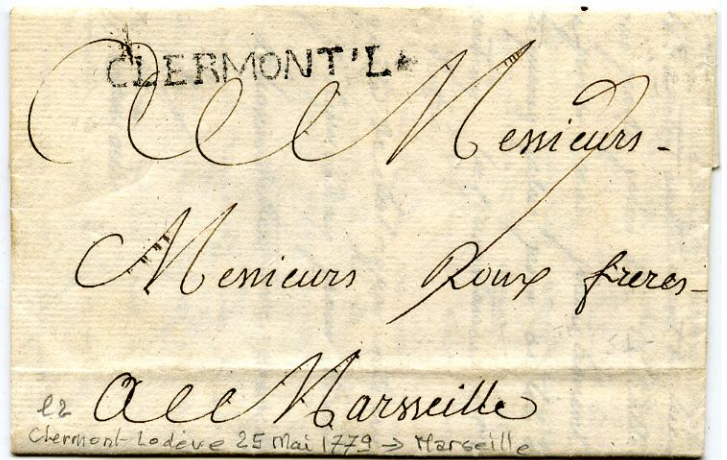 CLERMONT'L
A Messieurs
Messieurs Roux freres
A Marsseille
L2
Clermont-Lodève 25 Mai 1779 → Marseille